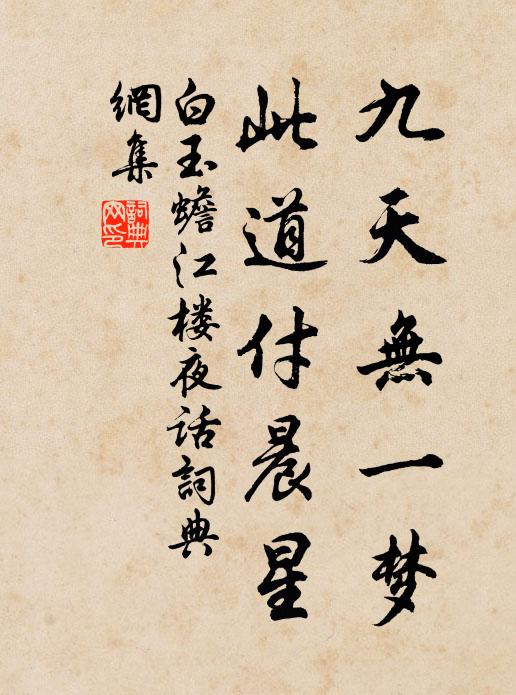 九天無一梦
此道付晨星
白玉蟾江楼夜话詞典
網集
詞典
网印